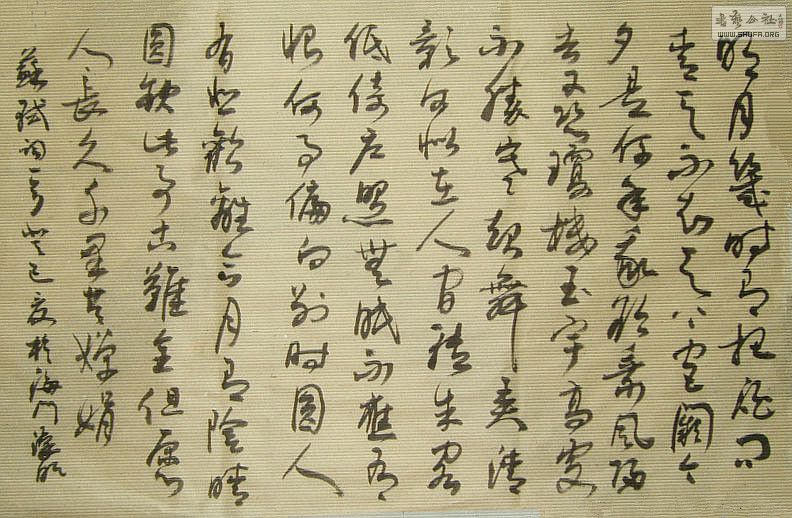 明月幾時有把酒問
青天不知天上宮闕今
夕是何年我欲乘風歸
去又恐瓊樓玉宇高處
不勝寒起舞弄清
影何似在人間轉朱閣
低綺户照無眠不應有
恨何事偏向别時圓人
有悲歡離合月有陰晴
圓缺此事古難全但願
人長久千里共嬋娟
蘇軾詞一首癸巳夏於海門
WWW.SHUFA.ORG